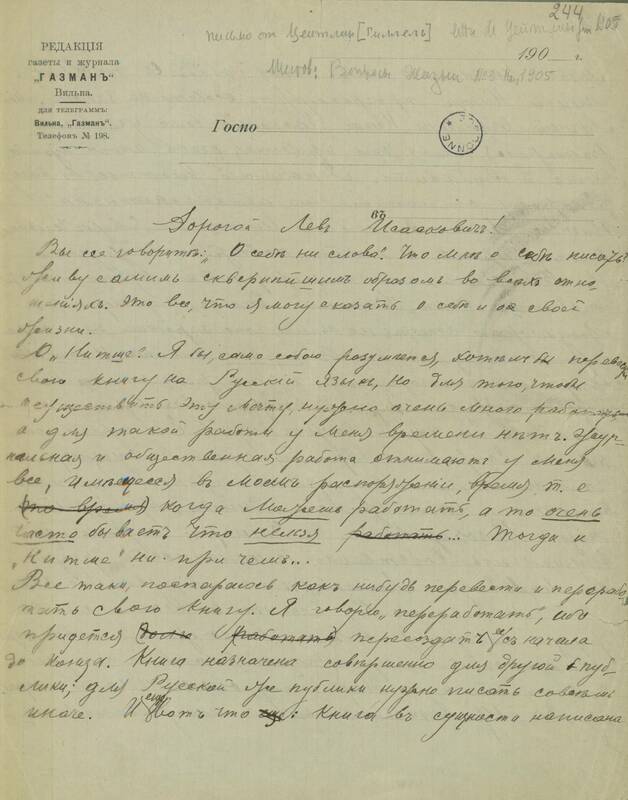 244
письмо от Цейтлин [Гиллель]
РЕДАКЦІЯ
газеты и журнала
„ГАЗМАНЪ“
Вильна.
ДЛЯ ТЕЛЕГРАММЪ:
Вильна, „Газманъ“.
Телефонъ № 198.
190 г.
Вопросы Жизни 1905
Госпо
SORBONNE
Дорогой Левъ Исааковичъ!
Вы все говорите: „О себѣ ни слова“. Что мнѣ о себѣ писать?
Живу самымъ сквернѣйшимъ образомъ во всѣхъ отно-
шеніяхъ. Это все, что я могу сказать о себѣ и о своей
жизни.
О „Нитше“. Я бы, само собою разумѣется, хотѣлъ перевести
свою книгу на Русскій языкъ, но для того, чтобы
осуществить эту мечту, нужно очень много работать
а для такой работы у меня времени нѣтъ. Жур-
нальная и общественная работа отнимаютъ у меня
все, имѣющееся въ моемъ распоряженіи, время, т. е
когда можешь работать, а то очень
часто бываетъ что нельзя работать... Тогда и
„Нитше“ ни при чемъ...
Все таки, постараюсь какъ нибудь перевести и перерабо-
тать свою книгу. Я говорю „переработать“, ибо
придется работать пересоздать ее съ начала
до конца. Книга назначена совершенно для другой пуб-
лики; для Русской же публики нужно писать совсѣмъ
иначе. И вотъ что еще: книга въ сущности написана